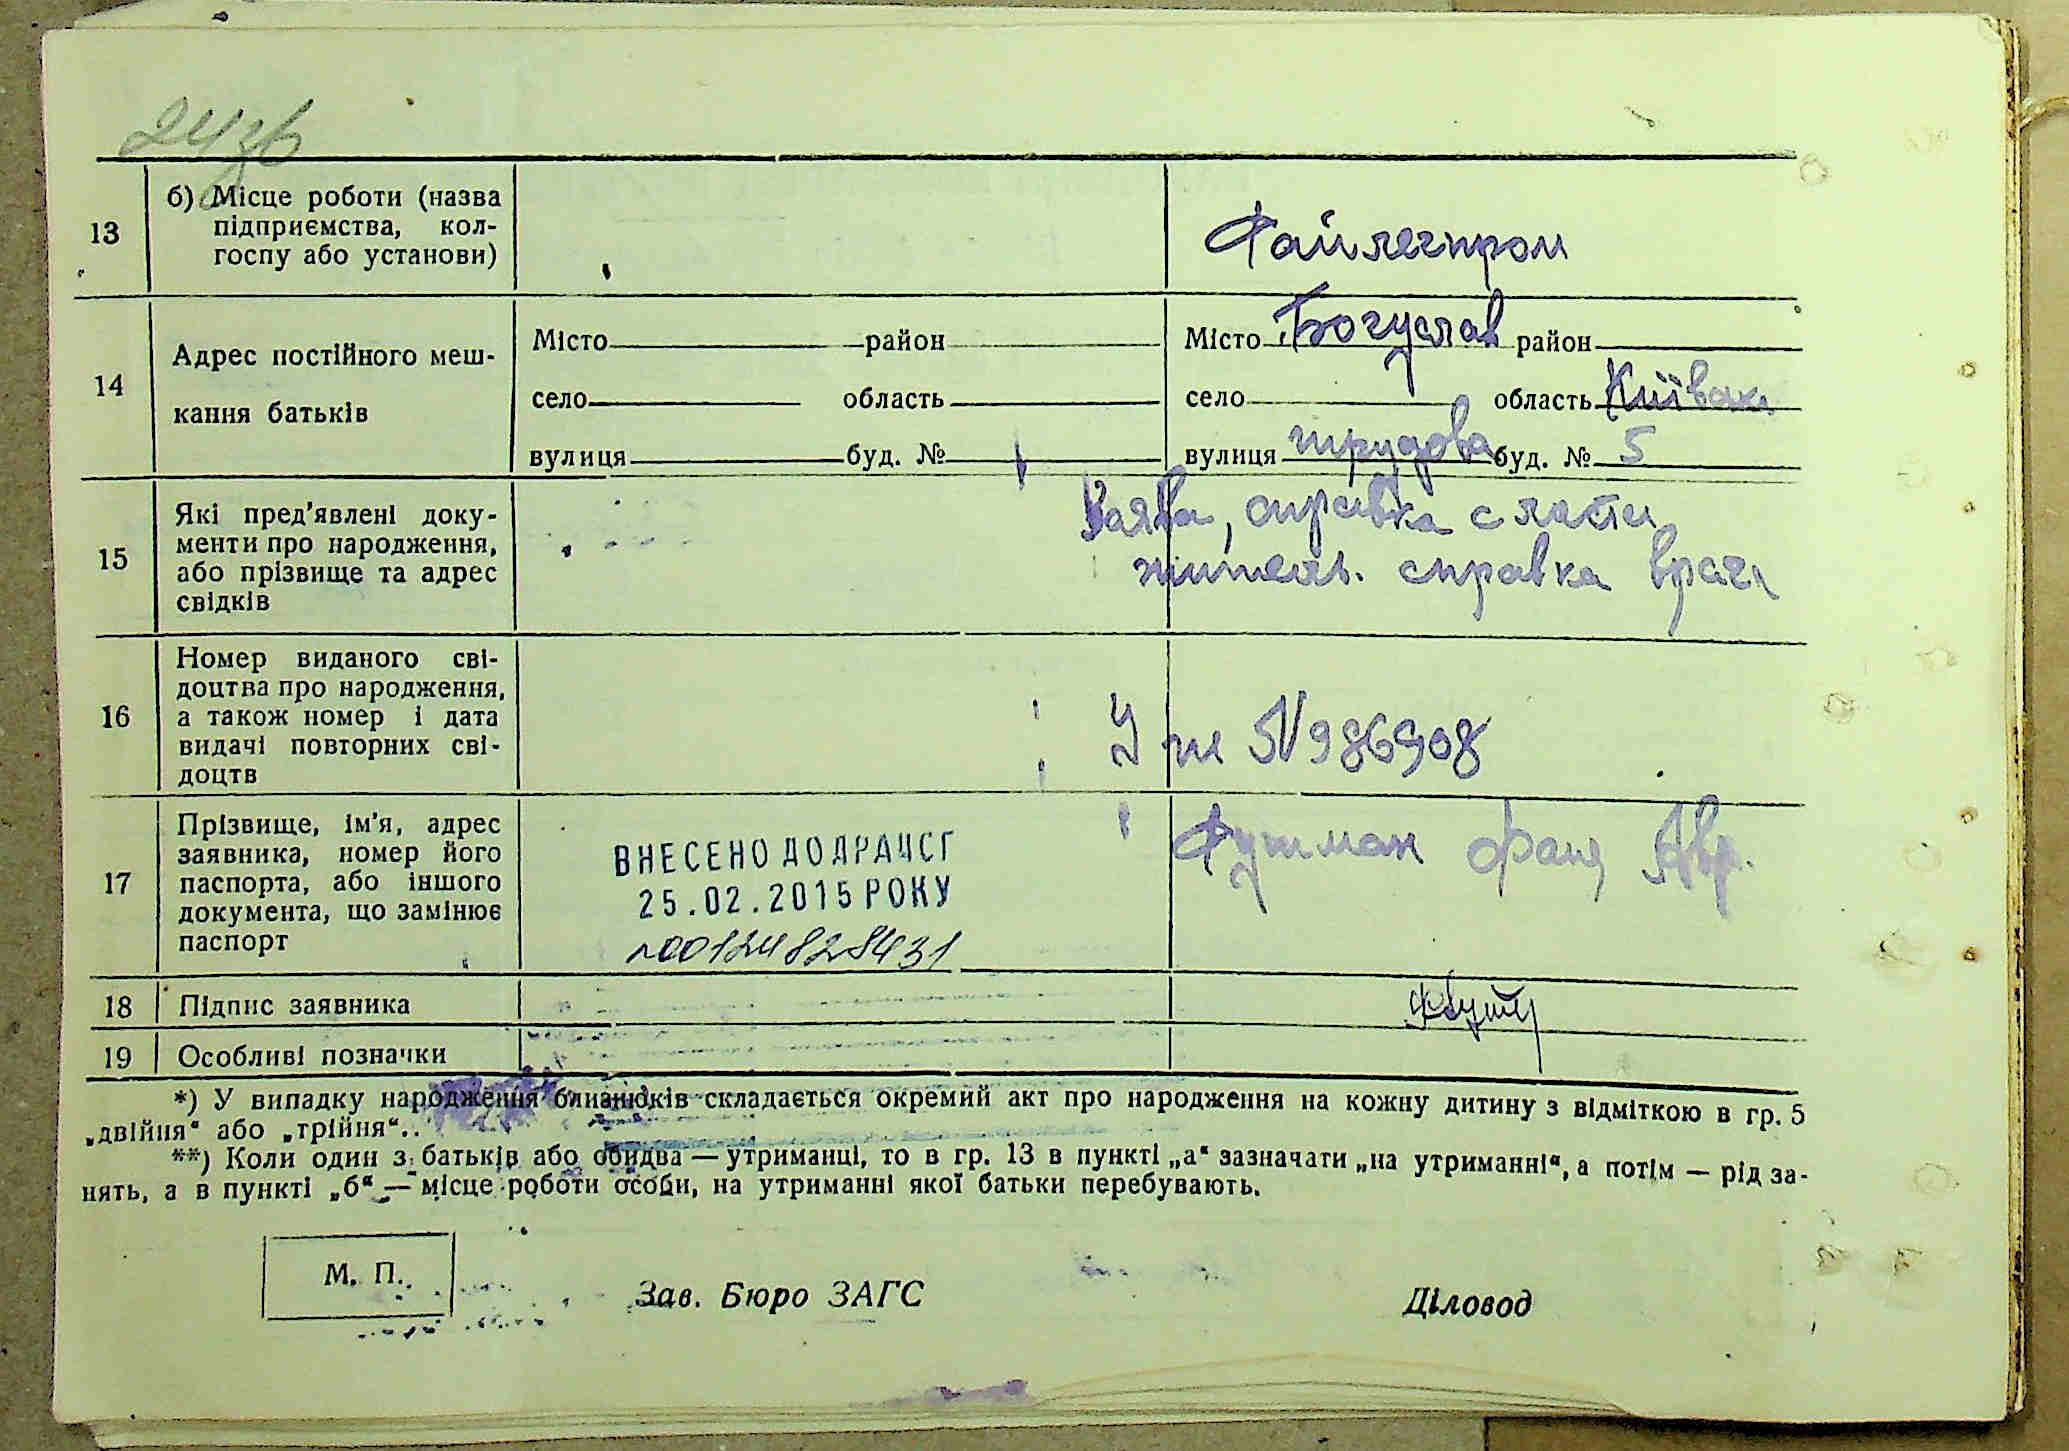 24зв
13
б) Місце роботи (назва
підприємства, кол-
госпу або установи)
Райлегпром
14
Адрес постійного меш-
кання батьків
Місто район
село область
вулиця буд. №
Місто Богуслав район
село область Київськ
вулиця трудова буд. № 5
15
Які пред'явлені доку-
менти про народження,
або прізвище та адрес
свідків
Заява, справка с
житель. справка врача
16
Номер виданого сві-
доцтва про народження,
а також номер і дата
видачі повторних сві-
доцтв
№986908
17
Прізвище, ім'я, адрес
заявника, номер його
паспорта, або іншого
документа, що замінює
паспорт
ВНЕСЕНО ДО ДРАЦСГ
25.02.2015 РОКУ
00124828431
Фаня Авр.
18
Підпис заявника
19
Особливі позначки
*) У випадку народження близнюків складається окремий акт про народження на кожну дитину з відміткою в гр. 5
„двійня“ або „трійня“.
**) Коли один з батьків або обидва — утриманці, то в гр. 13 в пункті „а“ зазначати „на утриманні“, а потім — рід за-
нять, а в пункті „б“ — місце роботи особи, на утриманні якої батьки перебувають.
М. П.
Зав. Бюро ЗАГС
Діловод